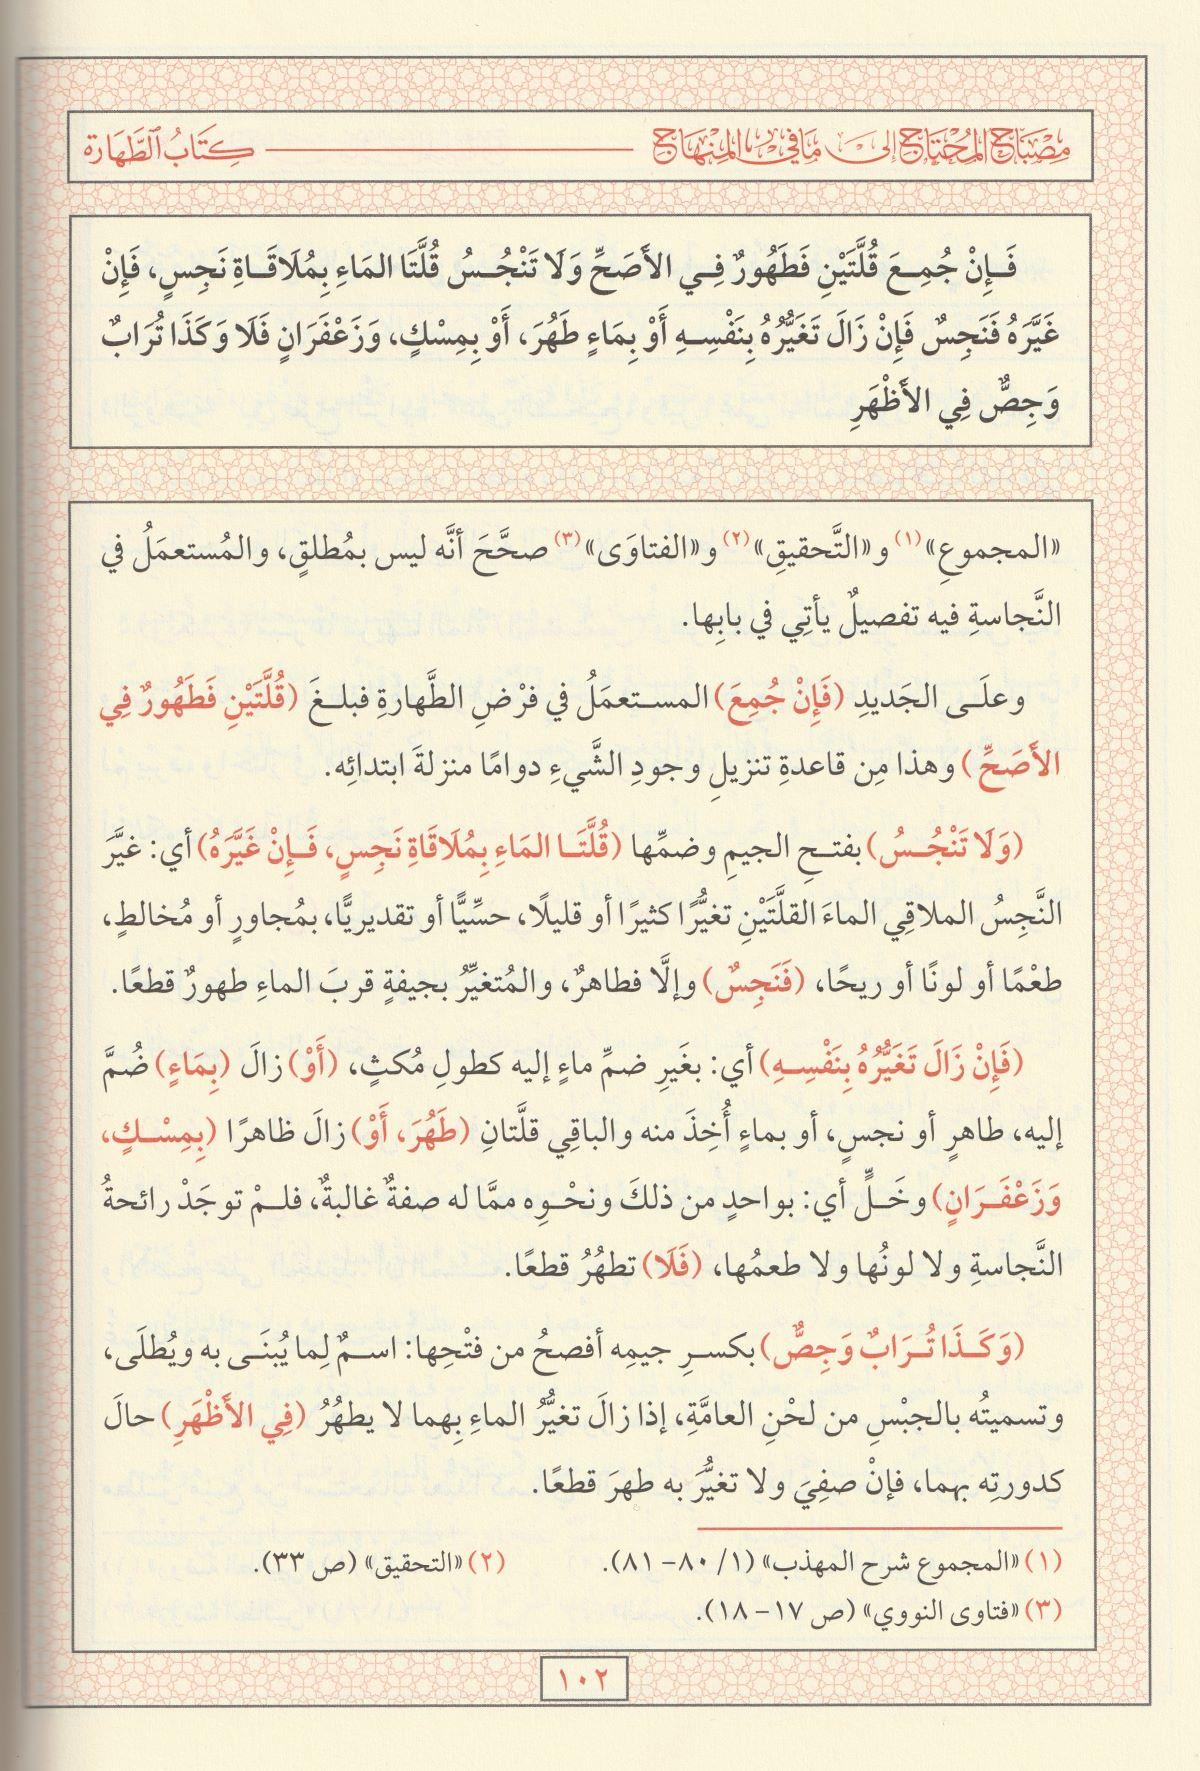 مِصْبَاحُ المُحْتَاجِ إِلَى مَا فِي المِنْهَاجِ كِتَابُ الطَّهَارَة
فَإِنْ جُمِعَ قُلَّتَيْنِ فَطَهُورٌ فِي الأَصَحِّ وَلَا تَنْجُسُ قُلَّتَا المَاءِ بِمُلَاقَاةِ نَجِسٍ، فَإِنْ
غَيَّرَهُ فَنَجِسٌ فَإِنْ زَالَ تَغَيُّرُهُ بِنَفْسِهِ أَوْ بِمَاءٍ طَهُرَ، أَوْ بِمِسْكٍ، وَزَعْفَرَانٍ فَلَا وَكَذَا تُرَابٌ
وَجِصٌّ فِي الأَظْهَرِ
«المجموعِ»(١) و«التَّحقيقِ»(٢) و«الفتاوَى»(٣) صحَّحَ أنَّه ليس بمُطلقٍ، والمُستعمَلُ في
النَّجاسةِ فيه تفصيلٌ يأتِي في بابِها.
وعلَى الجَديدِ (فَإِنْ جُمِعَ) المستعمَلُ في فرْضِ الطَّهارةِ فبلغَ (قُلَّتَيْنِ فَطَهُورٌ فِي
الأَصَحِّ) وهذا مِن قاعدةِ تنزيلِ وجودِ الشَّيءِ دوامًا منزلةَ ابتدائِه.
(وَلَا تَنْجُسُ) بفتحِ الجيمِ وضمِّها (قُلَّتَا المَاءِ بِمُلَاقَاةِ نَجِسٍ، فَإِنْ غَيَّرَهُ) أي: غيَّرَ
النَّجِسُ الملاقِي الماءَ القلَّتَيْنِ تغيُّرًا كثيرًا أو قليلًا، حسِّيًّا أو تقديريًّا، بمُجاورٍ أو مُخالطٍ،
طعْمًا أو لونًا أو ريحًا، (فَنَجِسٌ) وإلَّا فطاهرٌ، والمُتغيِّرُ بجيفةٍ قربَ الماءِ طهورٌ قطعًا.
(فَإِنْ زَالَ تَغَيُّرُهُ بِنَفْسِهِ) أي: بغَيرِ ضمِّ ماءٍ إليه كطولِ مُكثٍ، (أَوْ) زالَ (بِمَاءٍ) ضُمَّ
إليه، طاهرٍ أو نجسٍ، أو بماءٍ أُخِذَ منه والباقِي قلَّتانِ (طَهُرَ، أَوْ) زالَ ظاهرًا (بِمِسْكٍ،
وَزَعْفَرَانٍ) وخَلٍّ أي: بواحدٍ من ذلكَ ونحْوِه ممَّا له صفةٌ غالبةٌ، فلمْ توجَدْ رائحةُ
النَّجاسةِ ولا لونُها ولا طعمُها، (فَلَا) تطهُرُ قطعًا.
(وَكَذَا تُرَابٌ وَجِصٌّ) بكسرِ جيمِه أفصحُ من فتْحِها: اسمٌ لِما يُبنَى به ويُطلَى،
وتسميتُه بالجبْسِ من لحْنِ العامَّةِ، إذا زالَ تغيُّرُ الماءِ بِهما لا يطهُرُ (فِي الأَظْهَرِ) حالَ
كدورتِه بهما، فإنْ صفِيَ ولا تغيُّرَ به طهرَ قطعًا.
(١) «المجموع شرح المهذب» (١/ ٨٠- ٨١). (٢) «التحقيق» (ص ٣٣).
(٣) «فتاوى النووي» (ص ١٧- ١٨).
١٠٢